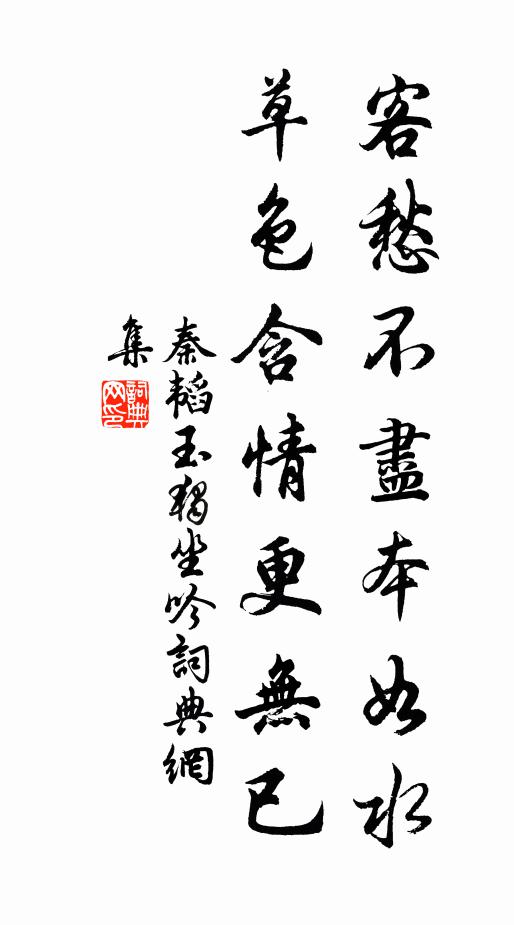 客愁不盡本如水
草色含情更無已
秦韜玉獨坐吟詞典網
集
詞典
网印